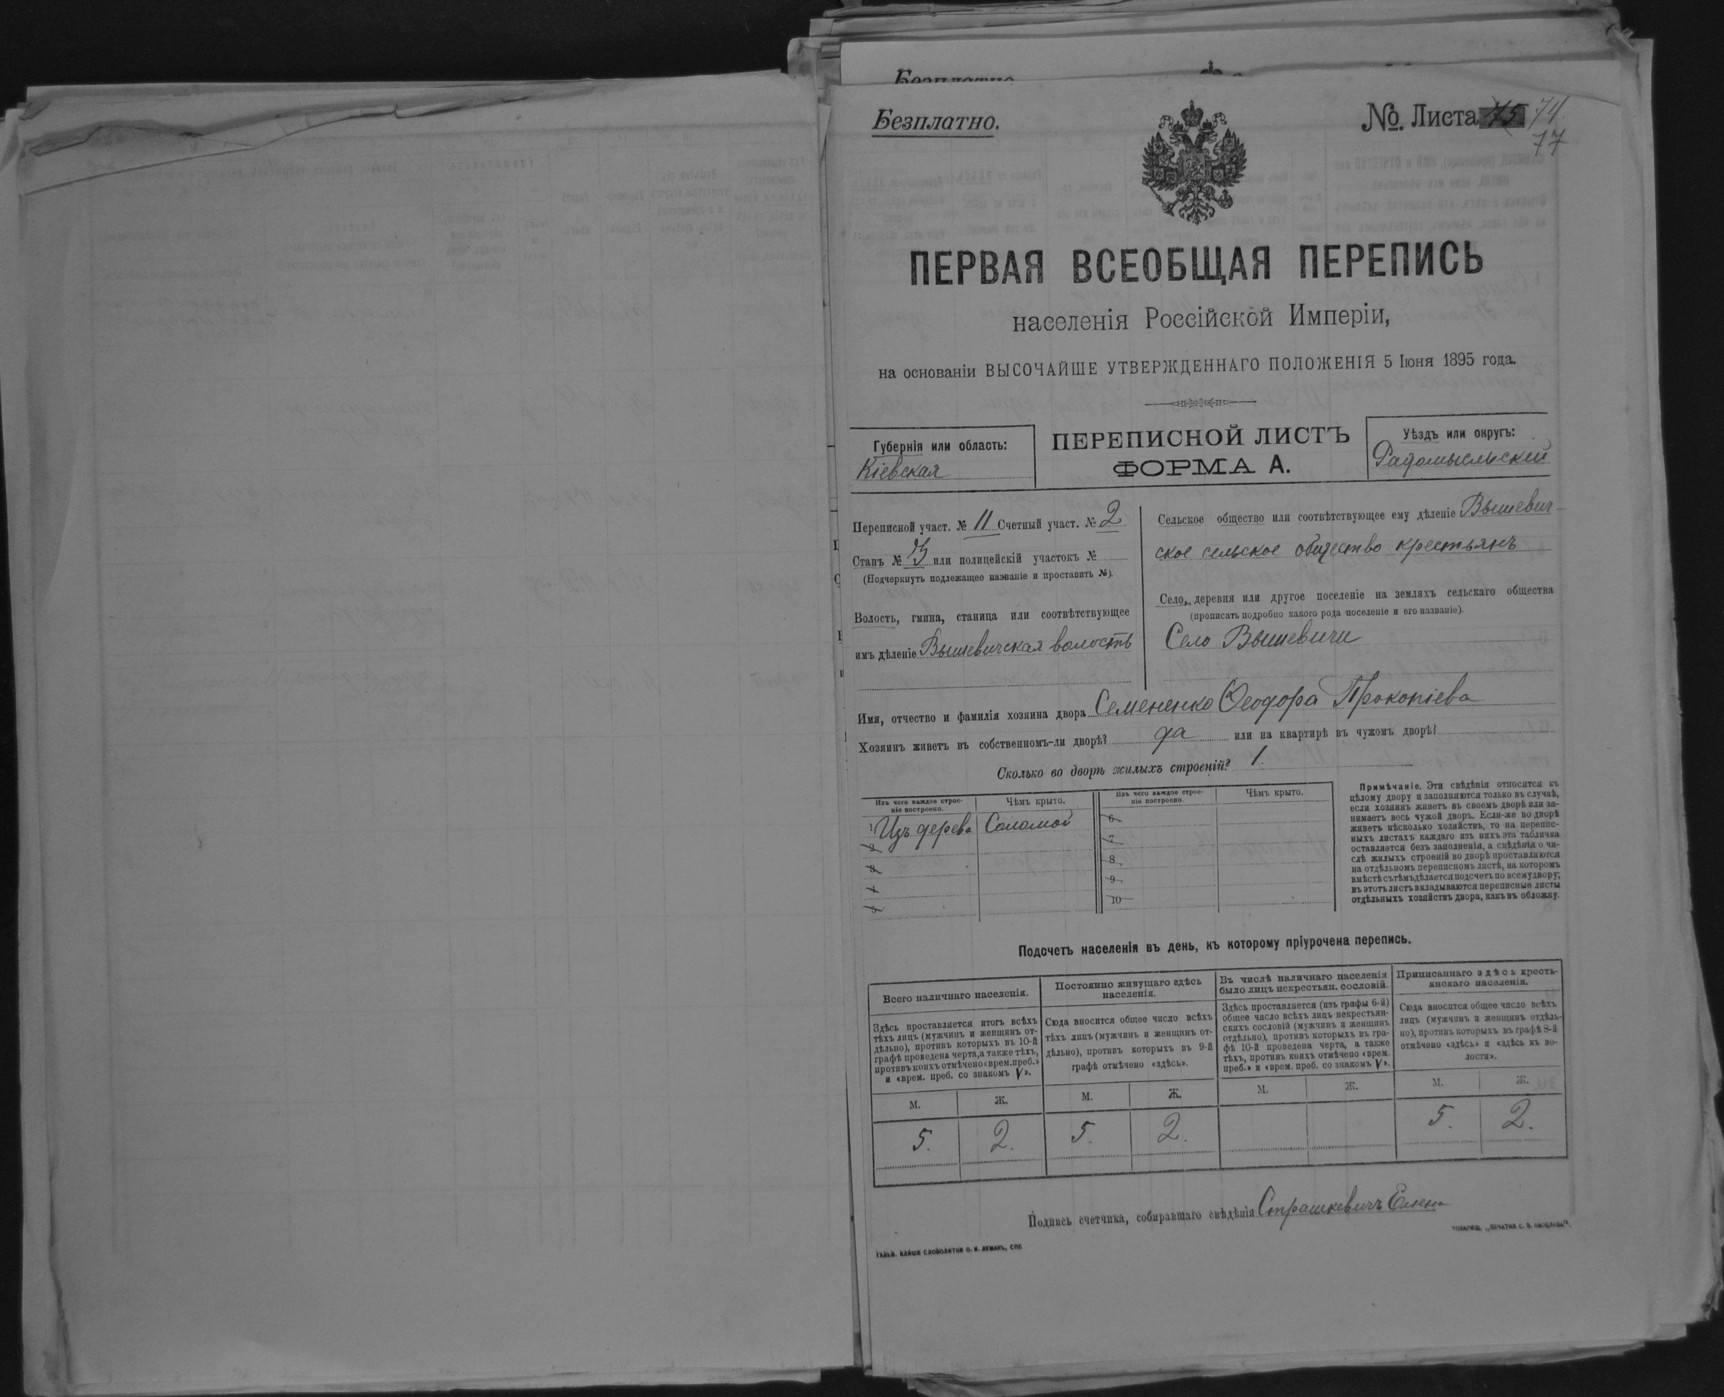 Безплатно.
№ Листа 74.
77
ПЕРВАЯ ВСЕОБЩАЯ ПЕРЕПИСЬ
населенія Россійской Имперіи,
на основаніи ВЫСОЧАЙШЕ УТВЕРЖДЕННАГО ПОЛОЖЕНІЯ 5 Іюня 1895 года.
Губернія или область:
Кіевская
ПЕРЕПИСНОЙ ЛИСТЪ
ФОРМА А.
Уѣздъ или округъ:
Радомысльскій
Переписной участ. № 11 Счетный участ. № 2
Станъ № 3 или полицейскій участокъ №
(Подчеркнуть подлежащее названіе и проставить №).
Волость, гмина, станица или соотвѣтствующее
имъ дѣленіе Вышевичская волость
Сельское общество или соотвѣтствующее ему дѣленіе Вышевич-
ское сельское общество крестьянъ
Село, деревня или другое поселеніе на земляхъ сельскаго общества
(прописать подробно какого рода поселеніе и его названіе).
Село Вышевичи
Имя, отчество и фамилія хозяина двора Семененко Ѳеодора Прокопіева
Хозяинъ живетъ въ собственномъ-ли дворѣ? да или на квартирѣ въ чужомъ дворѣ?
Сколько во дворѣ жилыхъ строеній? 1.
Изъ чего каждое строе-
ніе построено.
Чѣмъ крыто.
Изъ чего каждое строе-
ніе построено.
Чѣмъ крыто.
1 Изъ дерева Соломой
6
7
8
9
10
Примѣчаніе. Эти свѣдѣнія относятся къ
цѣлому двору и заполняются только въ случаѣ,
если хозяинъ живетъ въ своемъ дворѣ или за-
нимаетъ весь чужой дворъ. Если-же во дворѣ
живетъ нѣсколько хозяйствъ, то на перепис-
ныхъ листахъ каждаго изъ нихъ эта табличка
оставляется безъ заполненія, а свѣдѣнія о чи-
слѣ жилыхъ строеній во дворѣ проставляются
на отдѣльномъ переписномъ листѣ, на которомъ
вмѣстѣ съ тѣмъ дѣлается подсчетъ по всему двору;
въ этотъ листъ вкладываются переписные листы
отдѣльныхъ хозяйствъ двора, какъ въ обложку.
Подсчетъ населенія въ день, къ которому пріурочена перепись.
Всего наличнаго населенія.
Здѣсь проставляется итогъ всѣхъ
тѣхъ лицъ (мужчинъ и женщинъ от-
дѣльно), противъ которыхъ въ 10-й
графѣ проведена черта, а также тѣхъ,
противъ коихъ отмѣчено «врем. преб.»
и «врем. преб. со знакомъ V».
Постоянно живущаго здѣсь
населенія.
Сюда вносится общее число всѣхъ
тѣхъ лицъ (мужчинъ и женщинъ от-
дѣльно), противъ которыхъ въ 9-й
графѣ отмѣчено «здѣсь».
Въ числѣ наличнаго населенія
было лицъ некрестьян. сословій.
Здѣсь проставляется (изъ графы 6-й)
общее число всѣхъ лицъ некрестьян-
скихъ сословій (мужчинъ и женщинъ
отдѣльно), противъ которыхъ въ гра-
фѣ 10-й проведена черта, а также
тѣхъ, противъ коихъ отмѣчено «врем.
преб.» и «врем. преб. со знакомъ V».
Приписаннаго здѣсь кресть-
янскаго населенія.
Сюда вносится общее число всѣхъ
лицъ (мужчинъ и женщинъ отдѣль-
но), противъ которыхъ въ графѣ 8-й
отмѣчено «здѣсь» и «здѣсь къ во-
лости».
М. Ж. М. Ж. М. Ж. М. Ж.
5. 2. 5. 2. 5. 2.
Подпись счетчика, собиравшаго свѣдѣнія Страшкевичъ